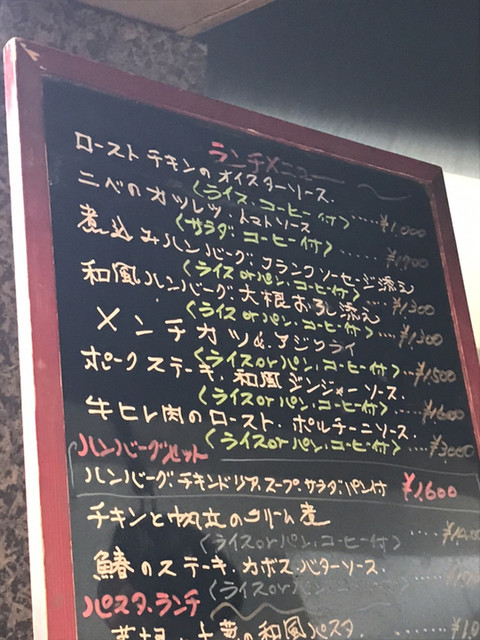 ランチメニュー
ローストチキンのオイスターソース.
〈ライス.コーヒー付〉.....¥1,000
ニベのカツレツ.トマトソース
〈サラダ.コーヒー付〉
煮込みハンバーグ.フランクソーセージ添え
〈ライスorパン.コーヒー付〉....¥1,300
和風ハンバーグ.大根おろし添え
〈ライスorパン.コーヒー付〉....¥1,300
メンチカツ&アジフライ
〈ライスorパン.コーヒー付〉....¥1,500
ポークステーキ.和風ジンジャーソース.
〈ライスorパン.コーヒー付〉...¥1600
牛ヒレ肉のロースト.ポルチーニソース.
〈ライスorパン.コーヒー付〉....¥3000
ハンバーグセット
ハンバーグ.チキンドリア.スープ.サラダ.パン付 ¥1600
チキンと帆立のクリーム煮
〈ライスorパン.コーヒー付〉....
鰆のステーキ.カボス.バターソース.
〈ライスorパン.コーヒー付〉....
パスタ.ランチ
の和風パスタ